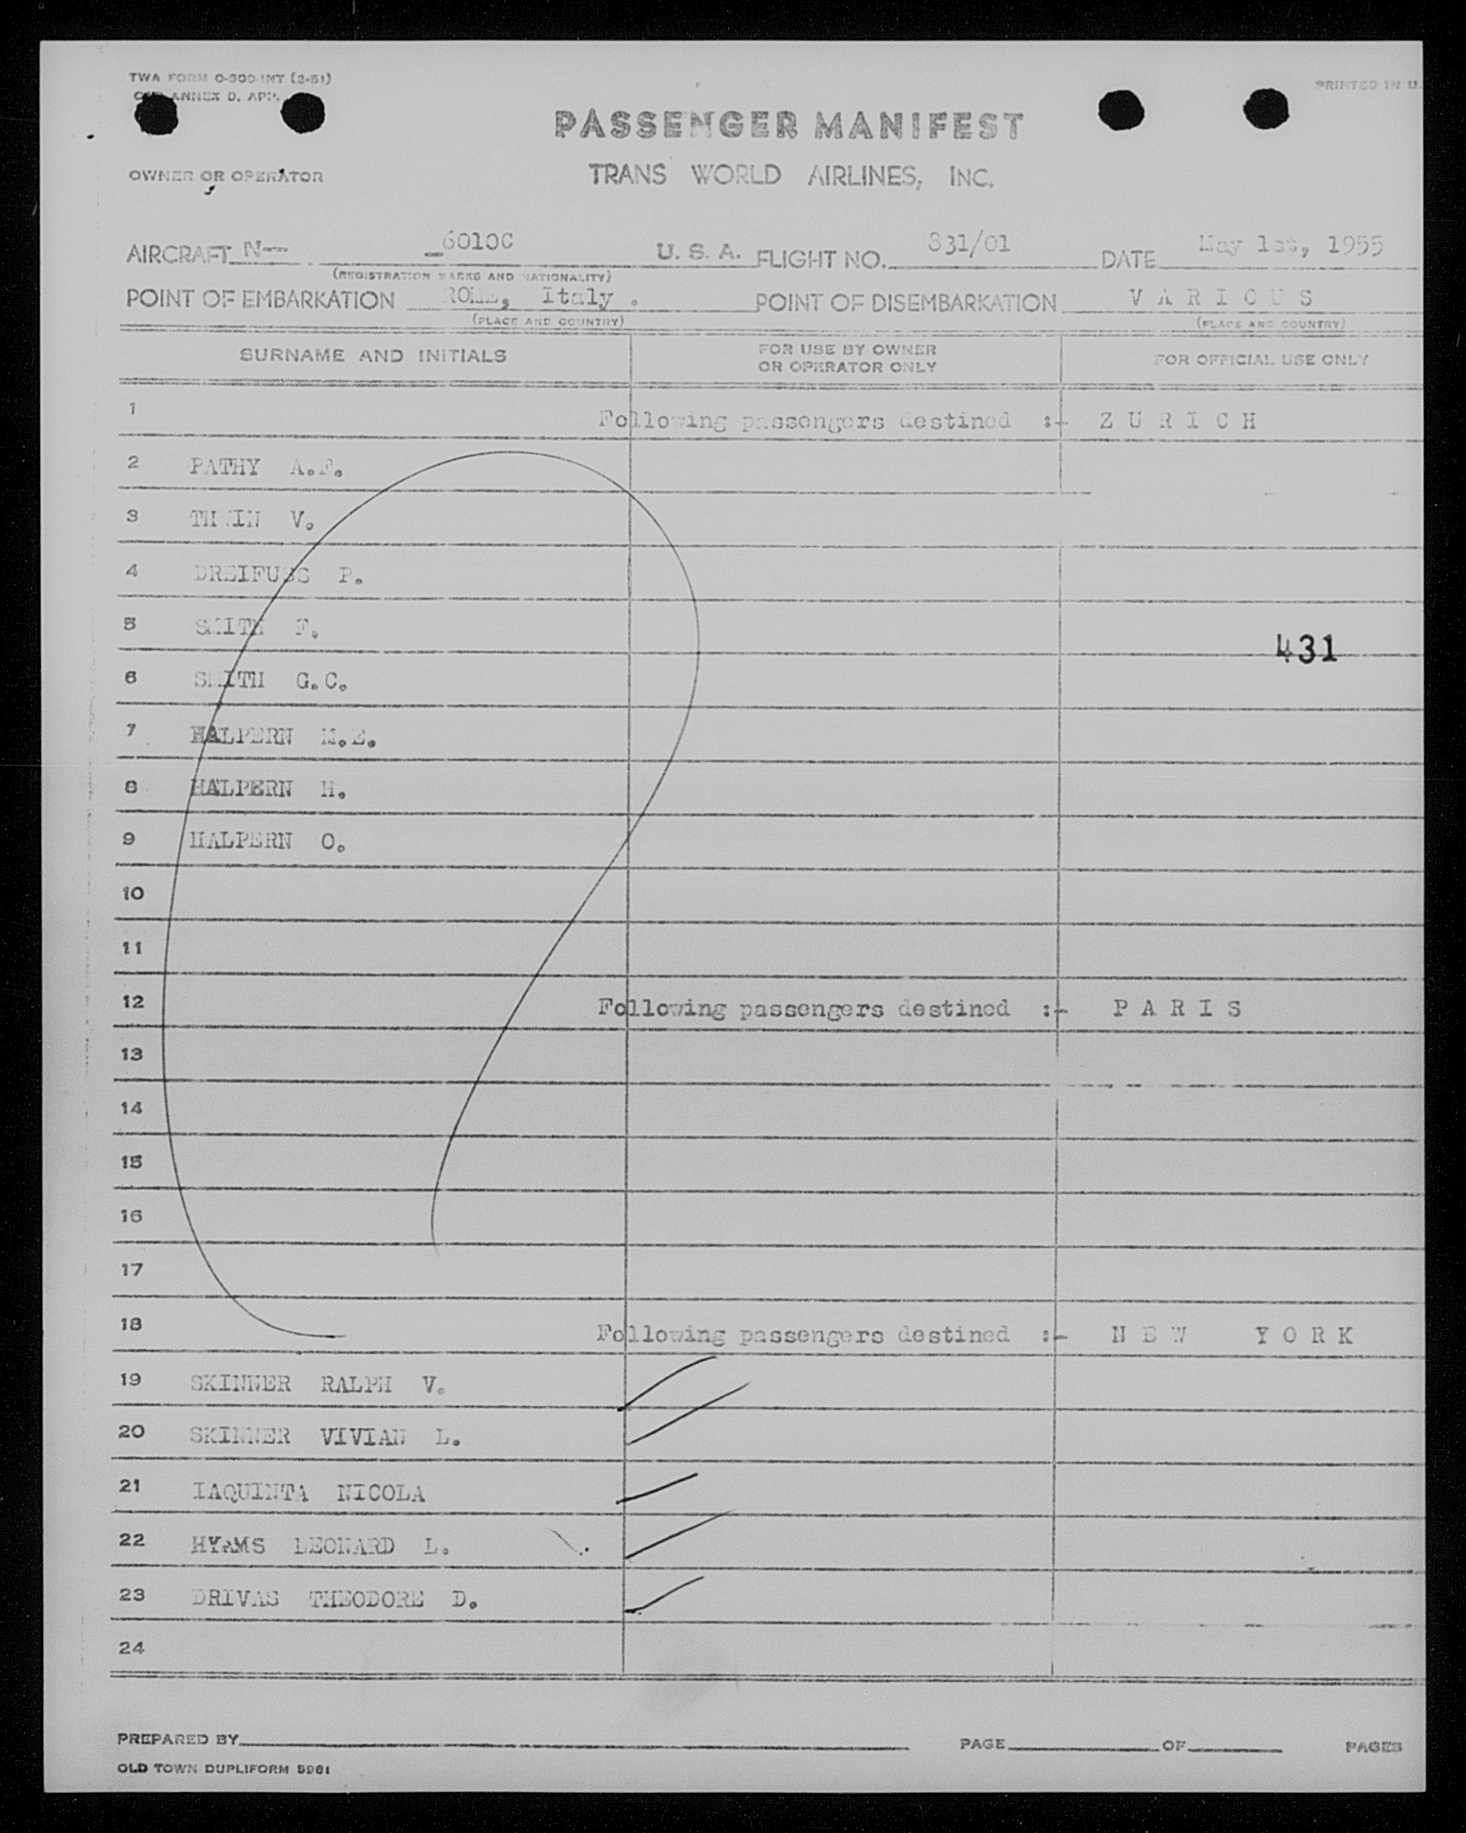 TWA FORM 0-300-INT (2-51)
ANNEX D, APP.
PRINTED IN U.
PASSENGER MANIFEST
TRANS WORLD AIRLINES, INC.
OWNER OR OPERATOR
AIRCRAFT N-- 6010C U. S. A. FLIGHT NO. 831/01 DATE May 1st, 1955
(REGISTRATION MARKS AND NATIONALITY)
POINT OF EMBARKATION ROME, Italy . POINT OF DISEMBARKATION V A R I O U S
(PLACE AND COUNTRY) (PLACE AND COUNTRY)
SURNAME AND INITIALS FOR USE BY OWNER OR OPERATOR ONLY FOR OFFICIAL USE ONLY
1 Following passengers destined :- Z U R I C H
2 PATHY A.F.
3 V.
4 DREIFUSS P.
5 SMITH F.
431
6 SMITH G.C.
7 HALPERN M.E.
8 HALPERN H.
9 HALPERN O.
10
11
12 Following passengers destined :- P A R I S
13
14
15
16
17
18 Following passengers destined :- N E W Y O R K
19 SKINNER RALPH V.
20 SKINNER VIVIAN L.
21 IAQUINTA NICOLA
22 HYAMS LEONARD L.
23 DRIVAS THEODORE D.
24
PREPARED BY PAGE OF PAGES
OLD TOWN DUPLIFORM 5961